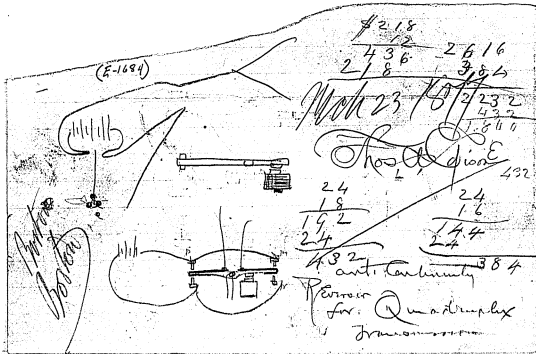 $218
12
436
218
2616
384
2232
432
1800
(E-1684)
Mch 23 187
Thos A Edison
432
24
18
192
24
432
24
16
144
24
384
Boston
Boston
anti Continuity
Reverser
for Quadruplex
Transmission